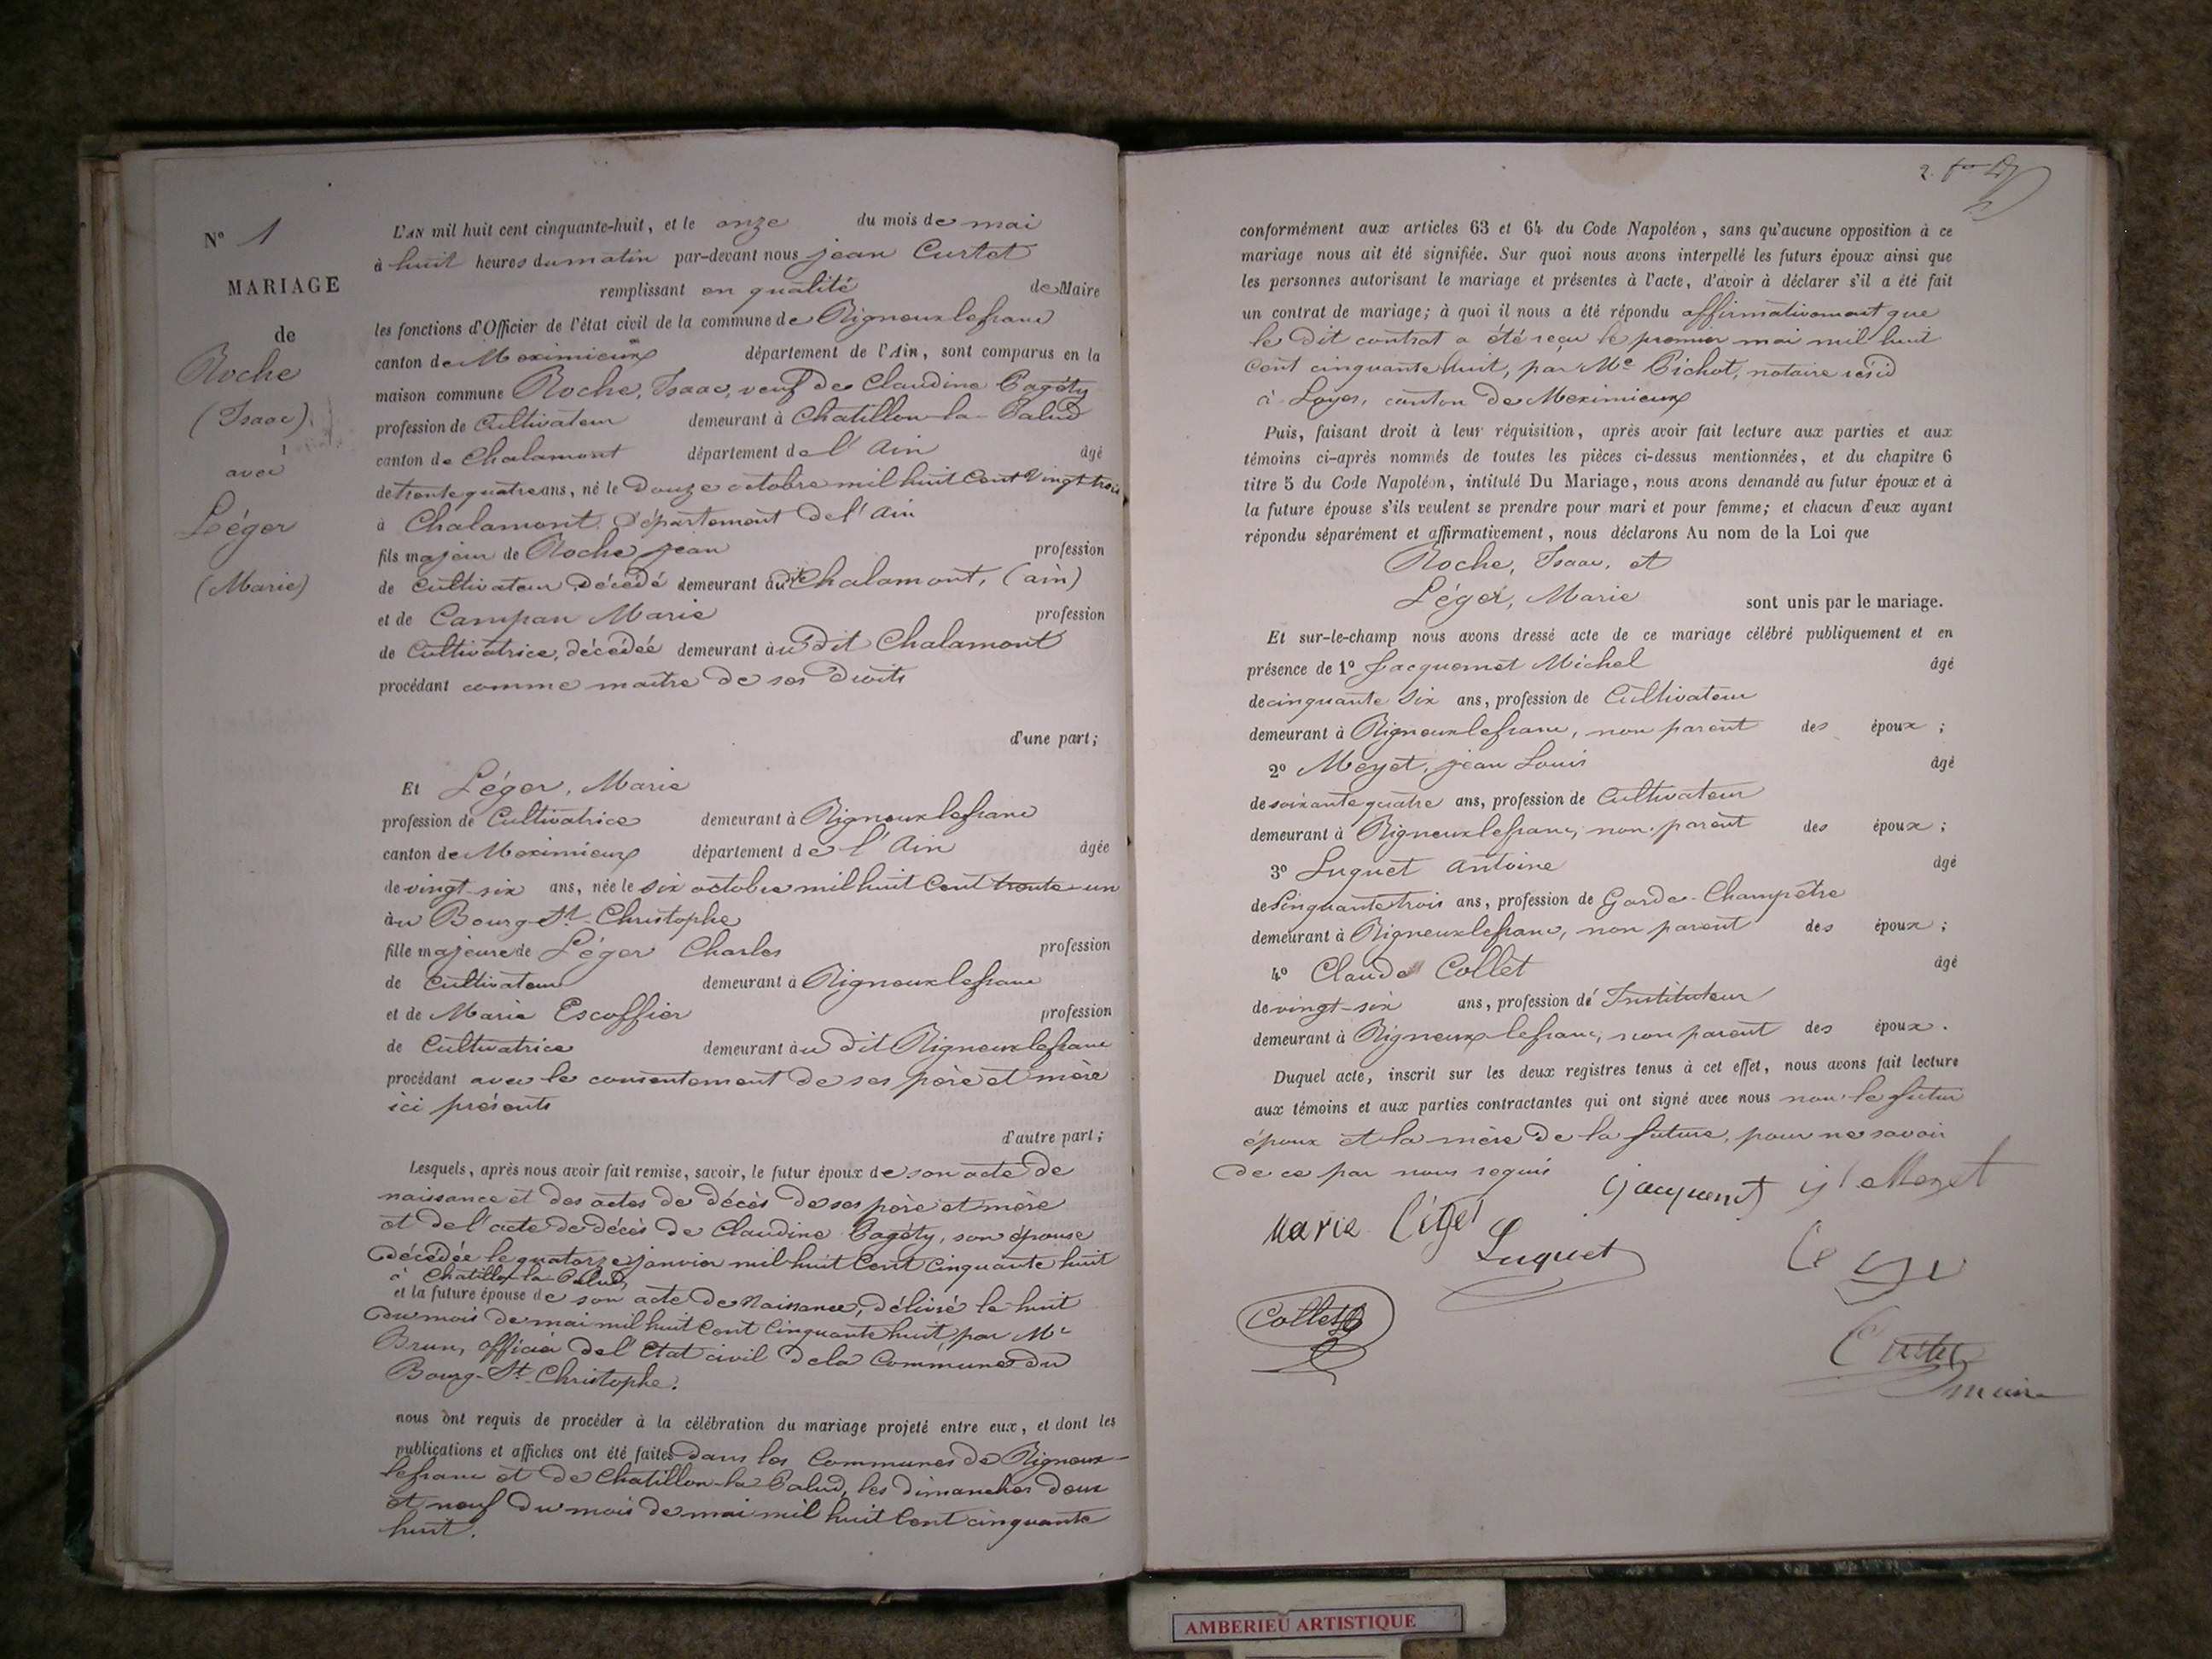 N° 1
MARIAGE
de
Roche
(Isaac)
avec
Léger
(Marie)
L'AN mil huit cent cinquante-huit, et le onze du mois de mai
à huit heures du matin par-devant nous jean Curtet
remplissant en qualité de Maire
les fonctions d'Officier de l'état civil de la commune de Rigneux le franc
canton de Meximieux département de l'Ain, sont comparus en la
maison commune Roche, Isaac, veuf de Claudine Pagéty
profession de Cultivateur demeurant à Chatillon-la-Palud
canton de Chalamont département de l'Ain âgé
de trente quatre ans, né le Douze octobre mil huit Cent Vingt trois
à Chalamont. Département de l'Ain
fils majeur de Roche jean profession
de Cultivateur décédé demeurant audt Chalamont, (ain)
et de Campan Marie profession
de Cultivatrice, décédée demeurant au dit Chalamont
procédant comme maitre de ses Droits
d'une part;
Et Léger, Marie
profession de Cultivatrice demeurant à Rigneux le franc
canton de Meximieux département de l'Ain âgée
de vingt-six ans, née le six octobre mil huit Cent trente-un
au Bourg-St-Christophe
fille majeure de Léger Charles profession
de Cultivateur demeurant à Rigneux le franc
et de Marie Escoffier profession
de Cultivatrice demeurant au dit Rigneux le franc
procédant avec le consentement de ses père et mère
ici présents
d'autre part;
Lesquels, après nous avoir fait remise, savoir, le futur époux de son acte de
naissance et des actes de décès de ses père et mère
et de l'acte de décès de Claudine Pagéty, son épouse
décédée le quatorze janvier mil huit Cent Cinquante huit
à Chatillon-la-Palud,
et la future épouse de son acte de Naissance, délivré le huit
du mois de mai mil huit Cent Cinquante huit, par Mr
Brun, officier de l'Etat civil de la Commune du
Bourg-St-Christophe.
nous ont requis de procéder à la célébration du mariage projeté entre eux, et dont les
publications et affiches ont été faites dans les Communes de Rigneux-
lefranc et de Chatillon-la-Palud, les dimanches deux
et neuf du mois de mai mil huit Cent cinquante
huit.
conformément aux articles 63 et 64 du Code Napoléon, sans qu'aucune opposition à ce
mariage nous ait été signifiée. Sur quoi nous avons interpellé les futurs époux ainsi que
les personnes autorisant le mariage et présentes à l'acte, d'avoir à déclarer s'il a été fait
un contrat de mariage; à quoi il nous a été répondu affirmativement que
le dit contrat a été reçu le premier mai mil huit
Cent cinquante huit, par Me Pichot, notaire résid
à Loyes, canton de Meximieux
Puis, faisant droit à leur réquisition, après avoir fait lecture aux parties et aux
témoins ci-après nommés de toutes les pièces ci-dessus mentionnées, et du chapitre 6
titre 5 du Code Napoléon, intitulé Du Mariage, nous avons demandé au futur époux et à
la future épouse s'ils veulent se prendre pour mari et pour femme; et chacun d'eux ayant
répondu séparément et affirmativement, nous déclarons Au nom de la Loi que
Roche, Isaac, et
Léger, Marie sont unis par le mariage.
Et sur-le-champ nous avons dressé acte de ce mariage célébré publiquement et en
présence de 1° Jacquemet Michel âgé
de cinquante Six ans, profession de Cultivateur
demeurant à Rigneux lefranc, non parent des époux ;
2° Meyet, jean Louis âgé
de soixante quatre ans, profession de Cultivateur
demeurant à Rigneux lefranc, non parent des époux ;
3° Luquet antoine âgé
de Cinquante trois ans, profession de Garde-Champêtre
demeurant à Rigneux lefranc, non parent des époux ;
4° Claude Collet âgé
de vingt-six ans, profession de Instituteur
demeurant à Rigneux lefranc, non parent des époux.
Duquel acte, inscrit sur les deux registres tenus à cet effet, nous avons fait lecture
aux témoins et aux parties contractantes qui ont signé avec nous non le futur
époux et la mère de la future, pour ne savoir
de ce par nous requis
jacquemet jl Meyet
Marie Léger
Luquet
Collet
Curtet
maire
AMBERIEU ARTISTIQUE